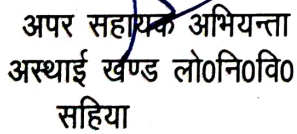 अपर सहायक अभियन्ता
अस्थाई खण्ड लो0नि0वि0
सहिया